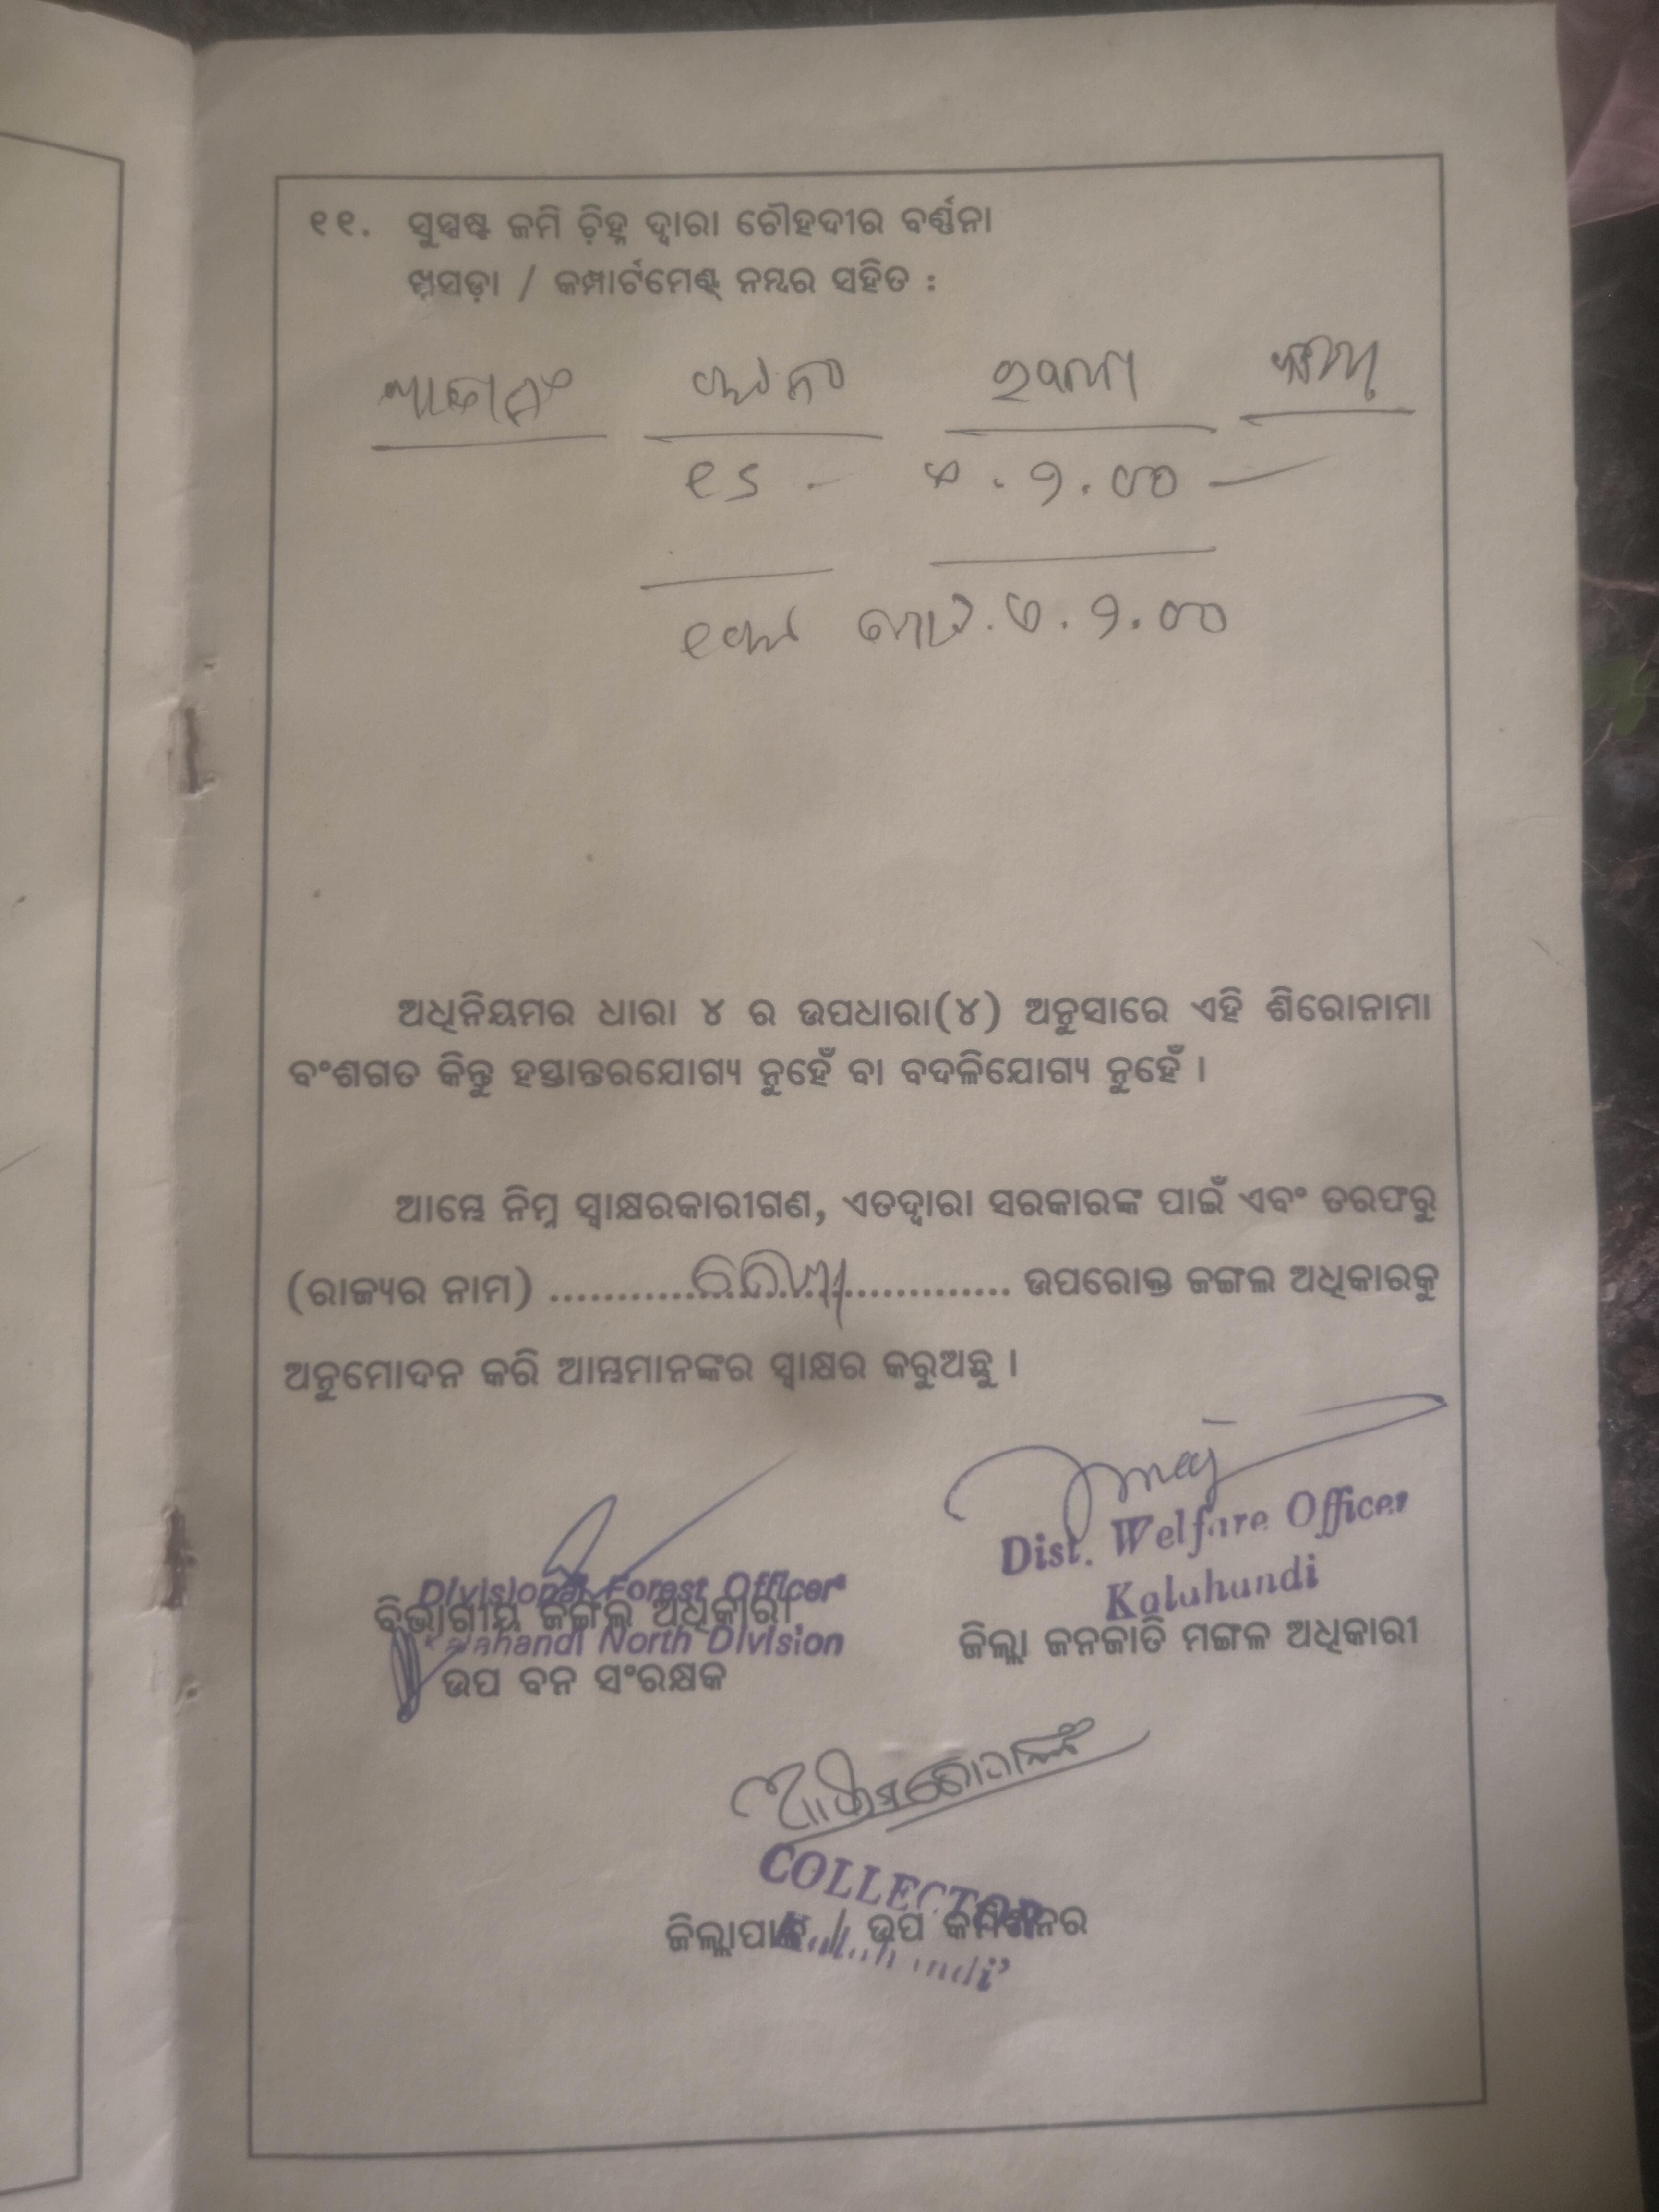 ୧୧. ସୁସ୍ପଷ୍ଟ ଜମି ଚ଼ିହ୍ନ ଦ୍ୱାରା ଚୌହଦୀର ବର୍ଣ୍ଣନା
ଖସଡ଼ା / କମ୍ପାର୍ଟମେଣ୍ଟ୍ ନମ୍ବର ସହିତ :
ରକବା
୨.୦୦
୨.୦୦
ଅଧିନିୟମର ଧାରା ୪ ର ଉପଧାରା(୪) ଅନୁସାରେ ଏହି ଶିରୋନାମା
ବଂଶଗତ କିନ୍ତୁ ହସ୍ତାନ୍ତରଯୋଗ୍ୟ ନୁହେଁ ବା ବଦଳିଯୋଗ୍ୟ ନୁହେଁ ।
ଆମ୍ଭେ ନିମ୍ନ ସ୍ୱାକ୍ଷରକାରୀଗଣ, ଏତଦ୍ୱାରା ସରକାରଙ୍କ ପାଇଁ ଏବଂ ତରଫରୁ
(ରାଜ୍ୟର ନାମ) ........ଓଡିଶା........ ଉପରୋକ୍ତ ଜଙ୍ଗଲ ଅଧିକାରକୁ
ଅନୁମୋଦନ କରି ଆମ୍ଭମାନଙ୍କର ସ୍ୱାକ୍ଷର କରୁଅଛୁ ।
Dist. Welfare Officer
Kalahandi
Divisional Forest Officer
ବିଭାଗୀୟ ଜଙ୍ଗଲ ଅଧିକାରୀ
Kalahandi North Division
ଜିଲ୍ଲା ଜନଜାତି ମଙ୍ଗଳ ଅଧିକାରୀ
ଉପ ବନ ସଂରକ୍ଷକ
COLLECTOR
ଜିଲ୍ଲାପାଳ / ଉପ କମିଶନର
Kalahandi